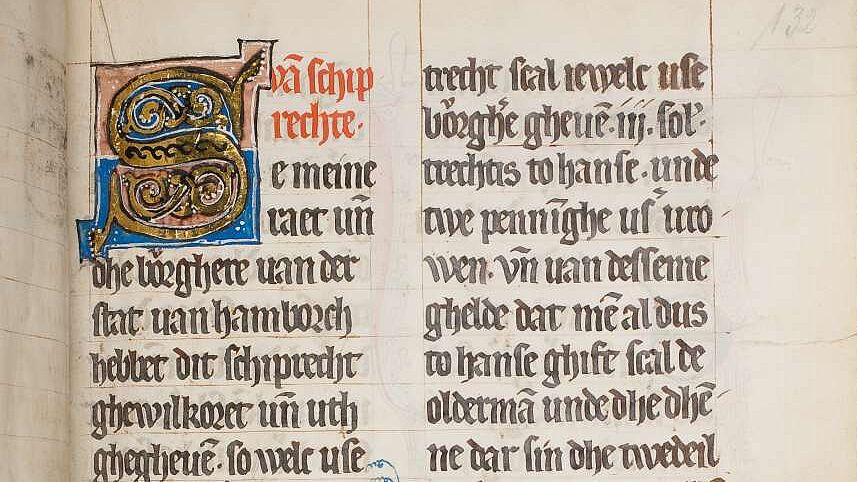 132
vā schip
rechte·
Se meine
raet uñ
dhe börghere uan der
stat uan hamborch
hebbet dit schiprecht
ghewilkoret uñ uth
ghegheuē· so welc use
trecht scal iewelc use
börgh'e gheuē·iij·sol'·
trechtis to hanse· unde
twe penninghe us' uro
wen· vñ uan desseme
ghelde dat mē al dus
to hanse ghift scal de
oldermā unde dhe dhē
ne dar sin dhe twedeil